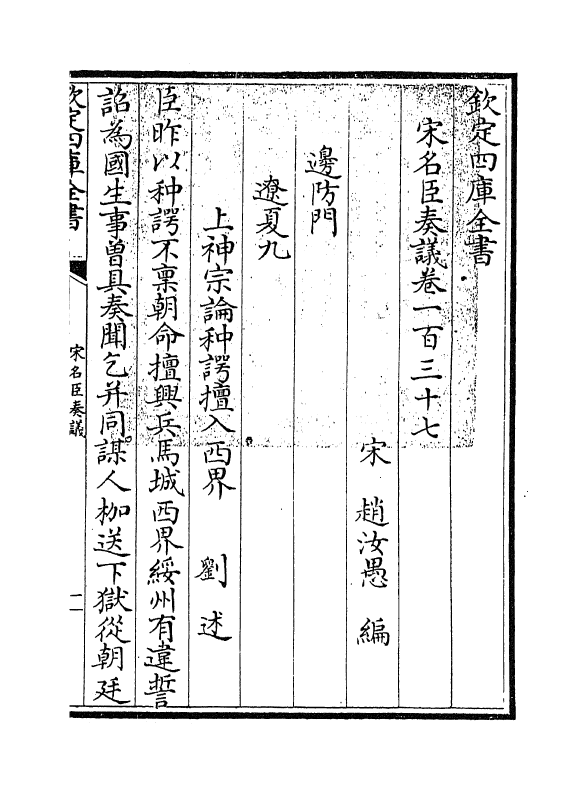 欽定四庫全書
宋名臣奏議卷一百三十七
宋 趙汝愚 編
邊防門
遼夏九
上神宗論种諤擅入西界 劉述
臣昨以种諤不禀朝命擅興兵馬城西界綏州有違誓
詔為國生事曽具奏聞乞并同謀人枷送下獄從朝廷
欽定四庫全書
宋名臣奏議